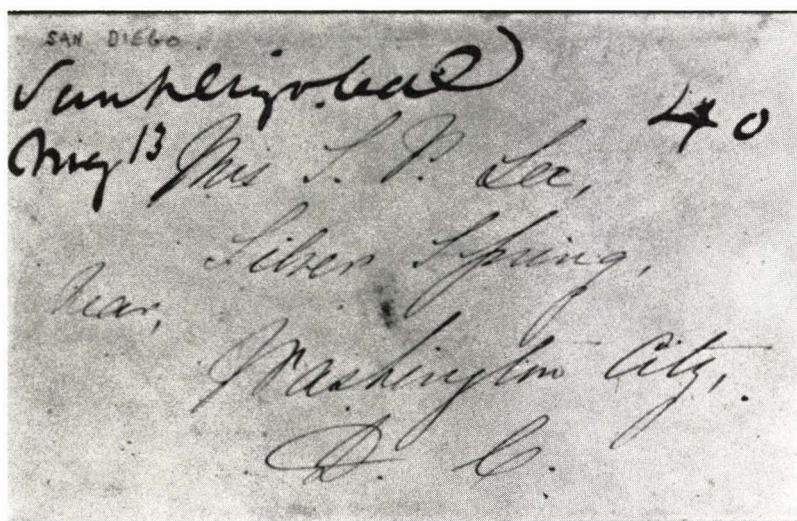 SAN DIEGO
San Diego Cal
May 13
40
Mrs S. P. Lee,
Silver Spring,
Near,
Washington City,
D. C.